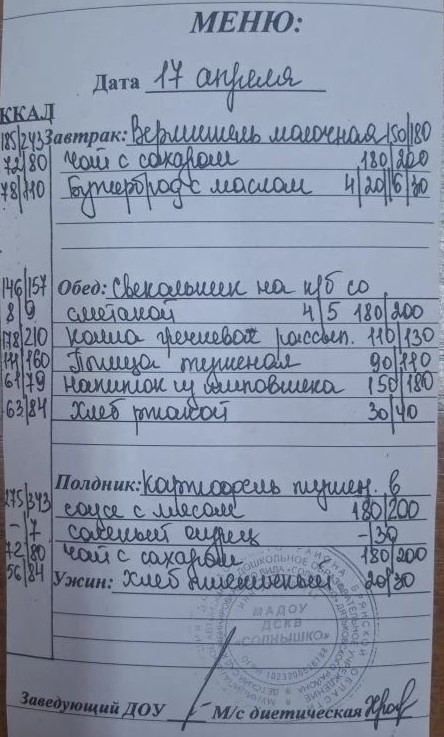 МЕНЮ:
Дата 17 апреля
ККАЛ
185/243 Завтрак: Вермишель молочная 150/180
72/80 Чай с сахаром 180/200
78/110 Бутерброд с маслом 4/20 6/30
146/157 Обед: Свекольник на к/б со
8/9 сметаной 4/5 180/200
178/210 Каша гречневая рассып. 110/130
111/160 Птица тушеная 90/110
61/79 Напиток из шиповника 150/180
63/84 Хлеб ржаной 30/40
Полдник: Картофель тушен. в
275/343 соусе с мясом 180/200
-/7 соленый огурец -/30
72/80 Чай с сахаром 180/200
56/84 Ужин: Хлеб пшеничный 20/30
МАДОУ
ДСКВ
«СОЛНЫШКО»
Заведующий ДОУ М/с диетическая